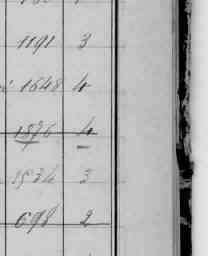 1191 3
1648 4
1876 4
1534 3
698 2